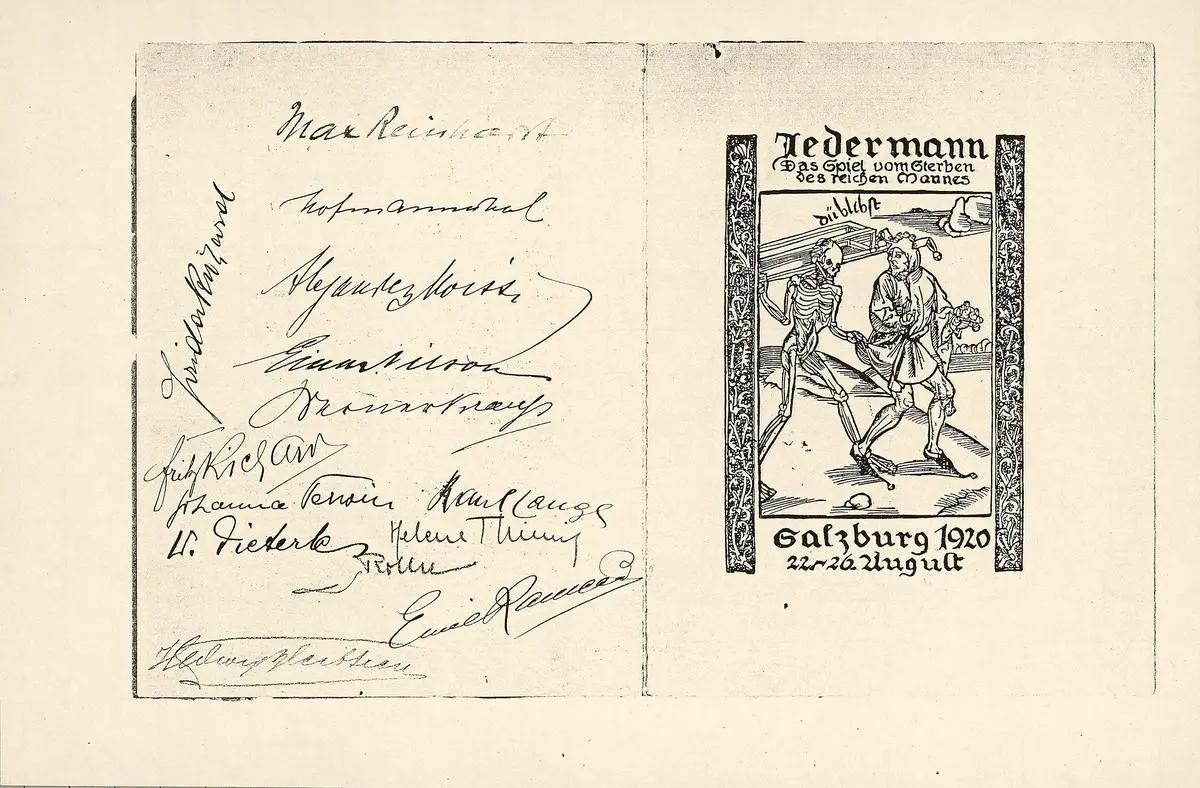 Max Reinhardt
Hofmannsthal
Alexander Moissi
Einar Nilson
Werner Krauss
Fritz Richard
Johanna Terwin Karl Lange
W. Dieterle Helene Thimig
Roller
Hedwig Bleibtreu
Jedermann
Das Spiel vom Sterben
des reichen Mannes
Salzburg 1920
22-26 August